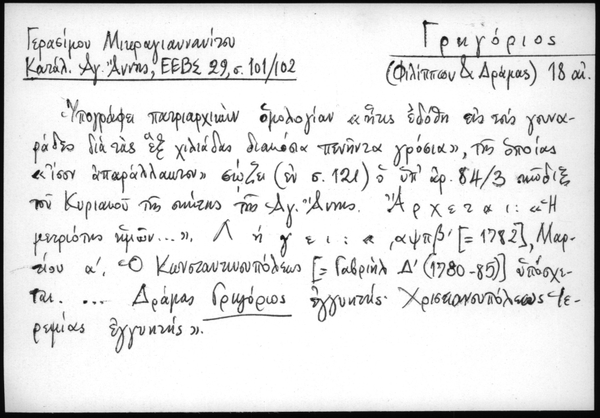 Γερασίμου Μικραγιαννανίτου
Γρηγόριος
Κατάλ. Ἁγ. Ἄννης, ΕΕΒΣ 29, σ. 101/102
(Φιλίππων & Δράμας) 18 αἰ.
Ὑπογράφει πατριαρχικὴν ὁμολογίαν «ἥτις ἐδόθη εἰς τοὺς γουνα-
ράδες διὰ τὰς ἓξ χιλιάδας διακόσια πενῆντα γρόσια», τῆς ὁποίας
«ἴσον ἀπαράλλακτον» σώζει (ἐν σ. 121) ὁ ὑπ' ἀρ. 84/3 κῶδιξ
τοῦ Κυριακοῦ τῆς σκήτης τῆς Ἁγ. Ἄννης. Ἄρχεται: «Ἡ
μετριότης ἡμῶν...». Λήγει: «͵αψπβ' [= 1782], Μαρ-
τίου α'. Ὁ Κωνσταντινουπόλεως [= Γαβριὴλ Δ' (1780-85)] ὑπόσχε-
ται. ... Δράμας Γρηγόριος ἐγγυητής. Χριστιανουπόλεως Ἱε-
ρεμίας ἐγγυητής».